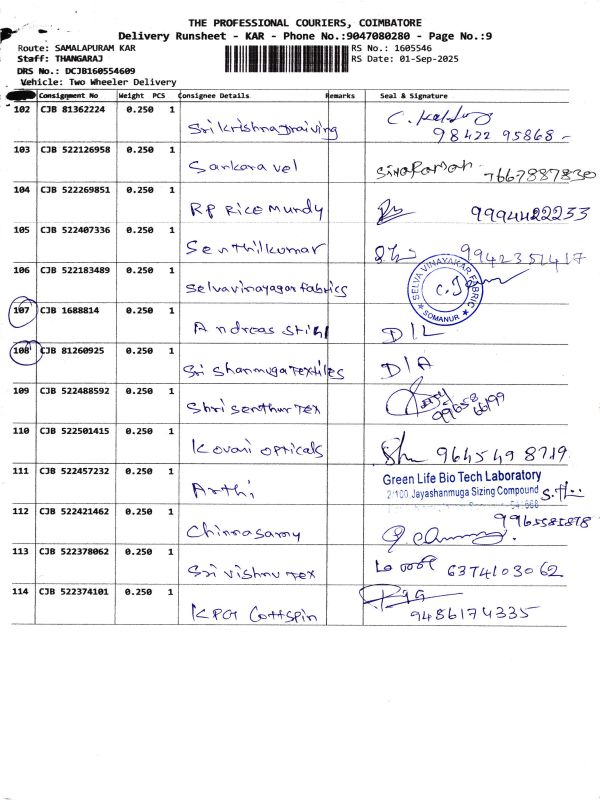 THE PROFESSIONAL COURIERS, COIMBATORE
Delivery Runsheet - KAR - Phone No.:9047080280 - Page No.:9
Route: SAMALAPURAM KAR RS No.: 1605546
Staff: THANGARAJ RS Date: 01-Sep-2025
DRS No.: DCJB160554609
Vehicle: Two Wheeler Delivery
Consignment No Weight PCS Consignee Details Remarks Seal & Signature
102 CJB 81362224 0.250 1
Sri Krishna Draiving 98422 95868
103 CJB 522126958 0.250 1
Sankaravel Sivaraman 7667887830
104 CJB 522269851 0.250 1
RP Rice Mundy 9994422233
105 CJB 522407336 0.250 1
Senthilkumar 9942351417
106 CJB 522183489 0.250 1
Selvavinayagar fabrics
SELVA VINAYAKAR FABRIC
SOMANUR
107 CJB 1688814 0.250 1
Andreas Stihl D/L
108 CJB 81260925 0.250 1
Sri Shanmuga Textiles D/A
109 CJB 522488592 0.250 1
Shri Senthur Tex 99658 66199
110 CJB 522501415 0.250 1
Kovai Opticals 9645498719
111 CJB 522457232 0.250 1
Arthi
Green Life Bio Tech Laboratory
2/100, Jayashanmuga Sizing Compound
112 CJB 522421462 0.250 1
Chinnasamy 9965585878
113 CJB 522378062 0.250 1
Sri Vishnu Tex 6374103062
114 CJB 522374101 0.250 1
KPG Cottspin 9486174335